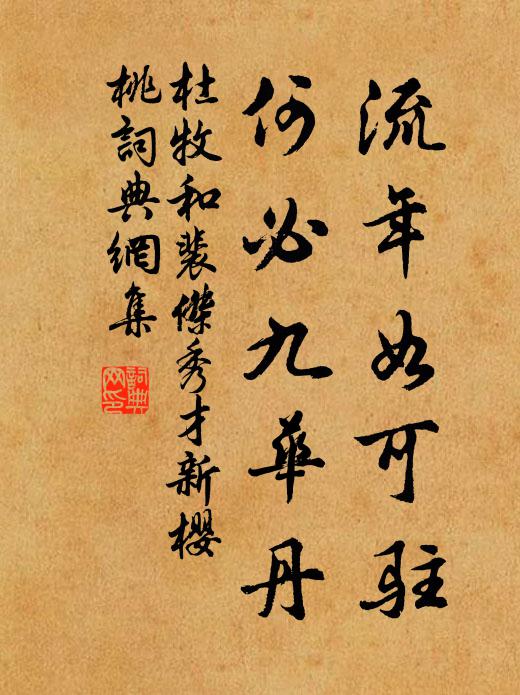 流年如可駐
何必九華丹
杜牧和裴傑秀才新櫻
桃詞典網集
詞典网印